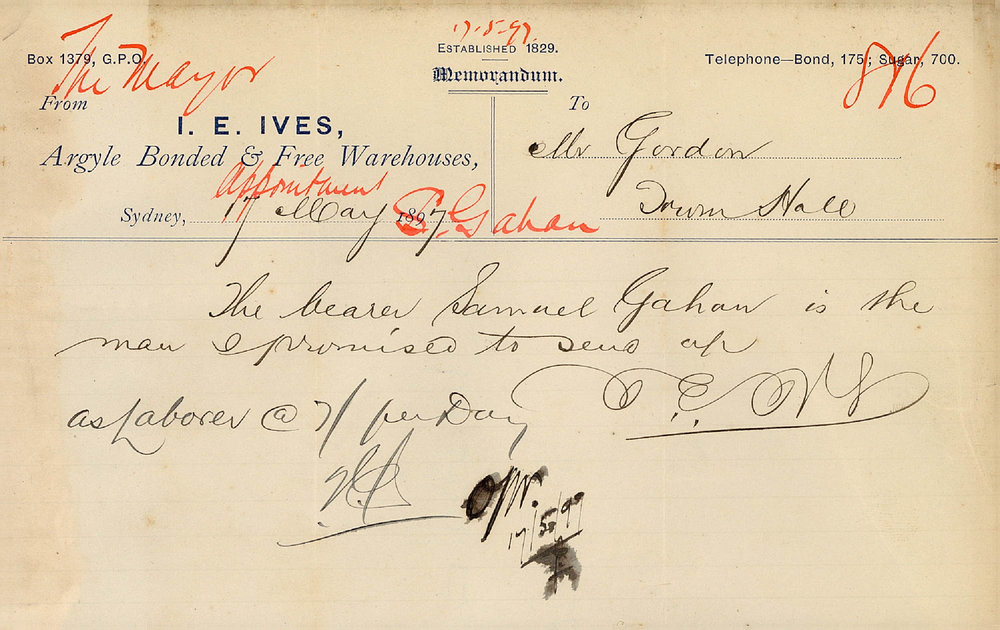 17.5.97
ESTABLISHED 1829.
Box 1379, G.P.O.
Telephone—Bond, 175; Sugar, 700.
The Mayor
816
Memorandum.
From
To
I. E. IVES,
Mr Gordon
Argyle Bonded & Free Warehouses,
Appointment
Sydney, 17 May 1897
S. Gahan
Town Hall
The bearer Samuel Gahan is the
man I promised to send up
as Laborer @ 7/ per Day
17/5/97